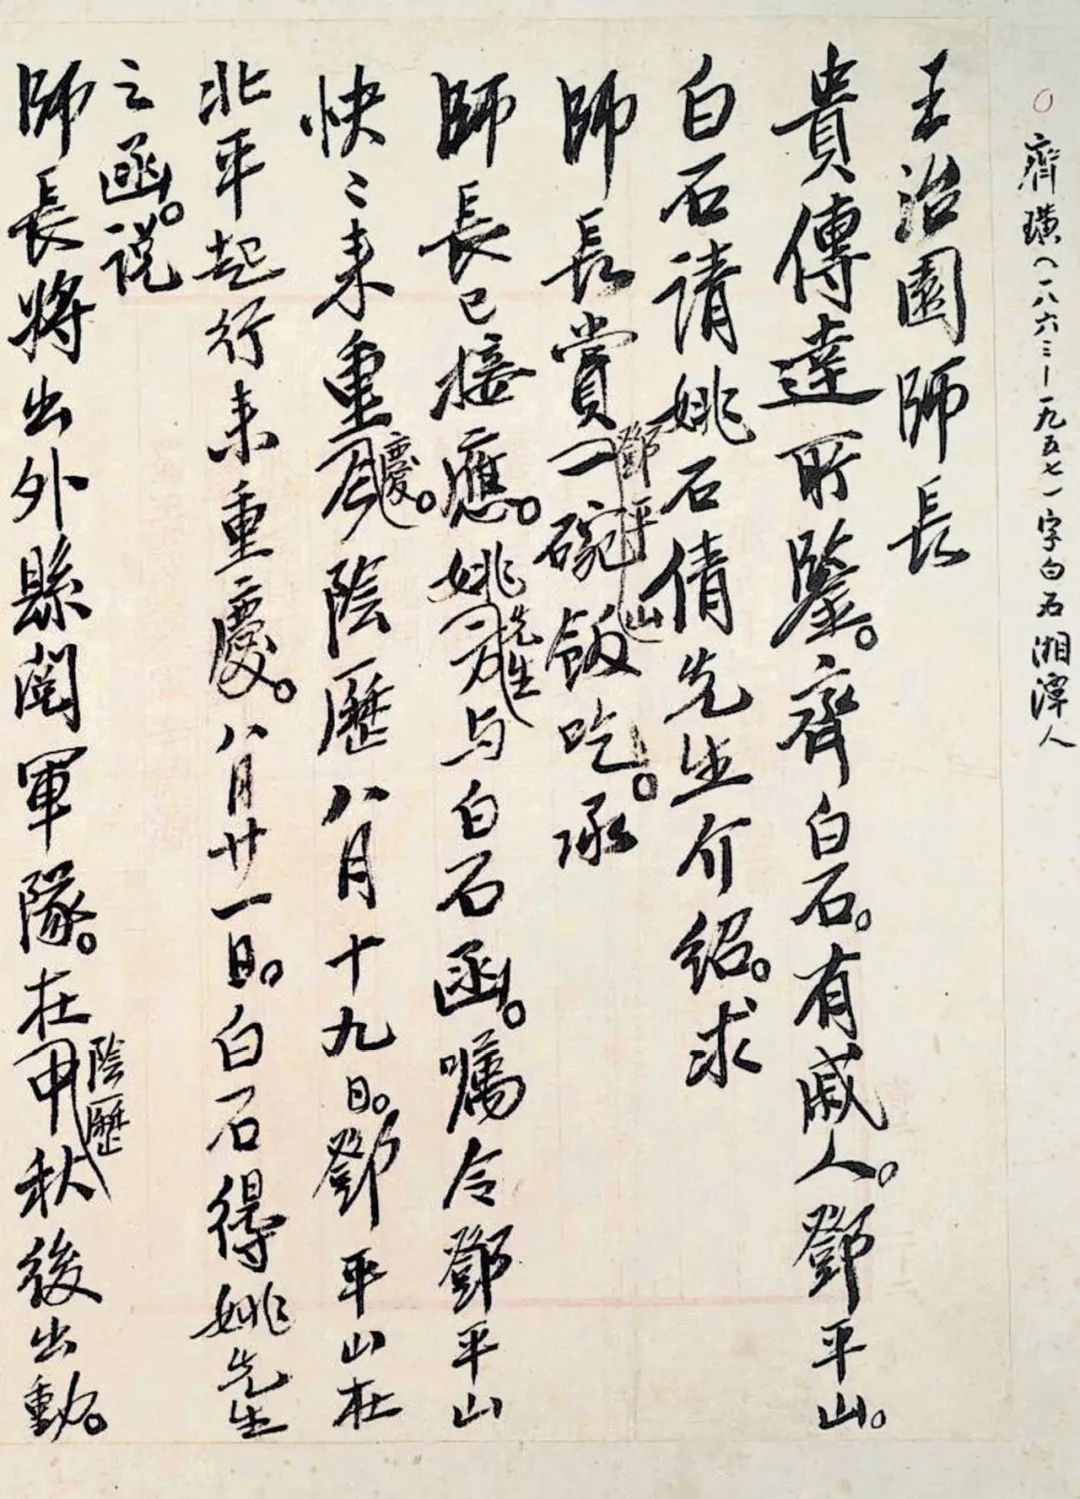 齊璜(一八六三—一九五七)字白石湘潭人
王治園師長
貴傳達所鑒。齊白石。有戚人。鄧平山。
白石請姚石倩先生介紹。求
師長賞鄧平山一碗飯吃。承
師長已接應。姚先生与白石函。囑令鄧平山
快〻来重慶。陰歷八月十九日。鄧平山在
北平起行来重慶。八月廿一日。白石得姚先生
之函。说
師長將出外縣閱軍隊。在陰歷中秋後出動。